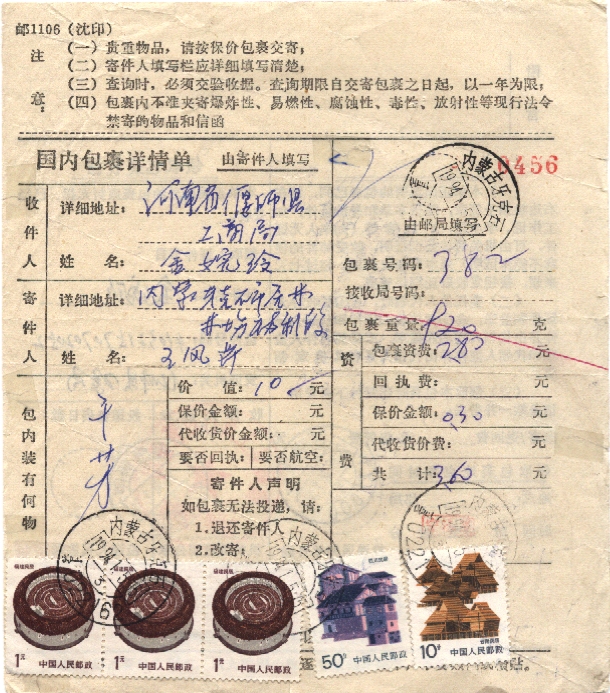 邮1106（沈印）
注意：
（一）贵重物品，请按保价包裹交寄；
（二）寄件人填写栏应详细填写清楚；
（三）查询时，必须交验收据。查询期限自交寄包裹之日起，以一年为限；
（四）包裹内不准夹寄爆炸性、易燃性、腐蚀性、毒性、放射性等现行法令
禁寄的物品和信函
国内包裹详情单 由寄件人填写
0456
内蒙古乐克石
由邮局填写
收件人
详细地址：河南省偃师县
工商局
姓 名：金婉玲
寄件人
详细地址：内蒙
姓 名：王凤
包裹号码：382
接收局号码：
包裹重量：920 克
资费
包裹资费：2.80 元
回执费： 元
保价金额：0.30 元
代收货价费： 元
共 计：3.60 元
包内装有何物
价 值：10 元
保价金额： 元
代收货价金额： 元
要否回执： 要否航空：
寄件人声明
如包裹无法投递，请：
1.退还寄件人
2.改寄：
内蒙古乐克石
福建民居
1元 中国人民邮政
福建民居
1元 中国人民邮政
福建民居
1元 中国人民邮政
50分 中国人民邮政
云南民居
10分 中国人民邮政